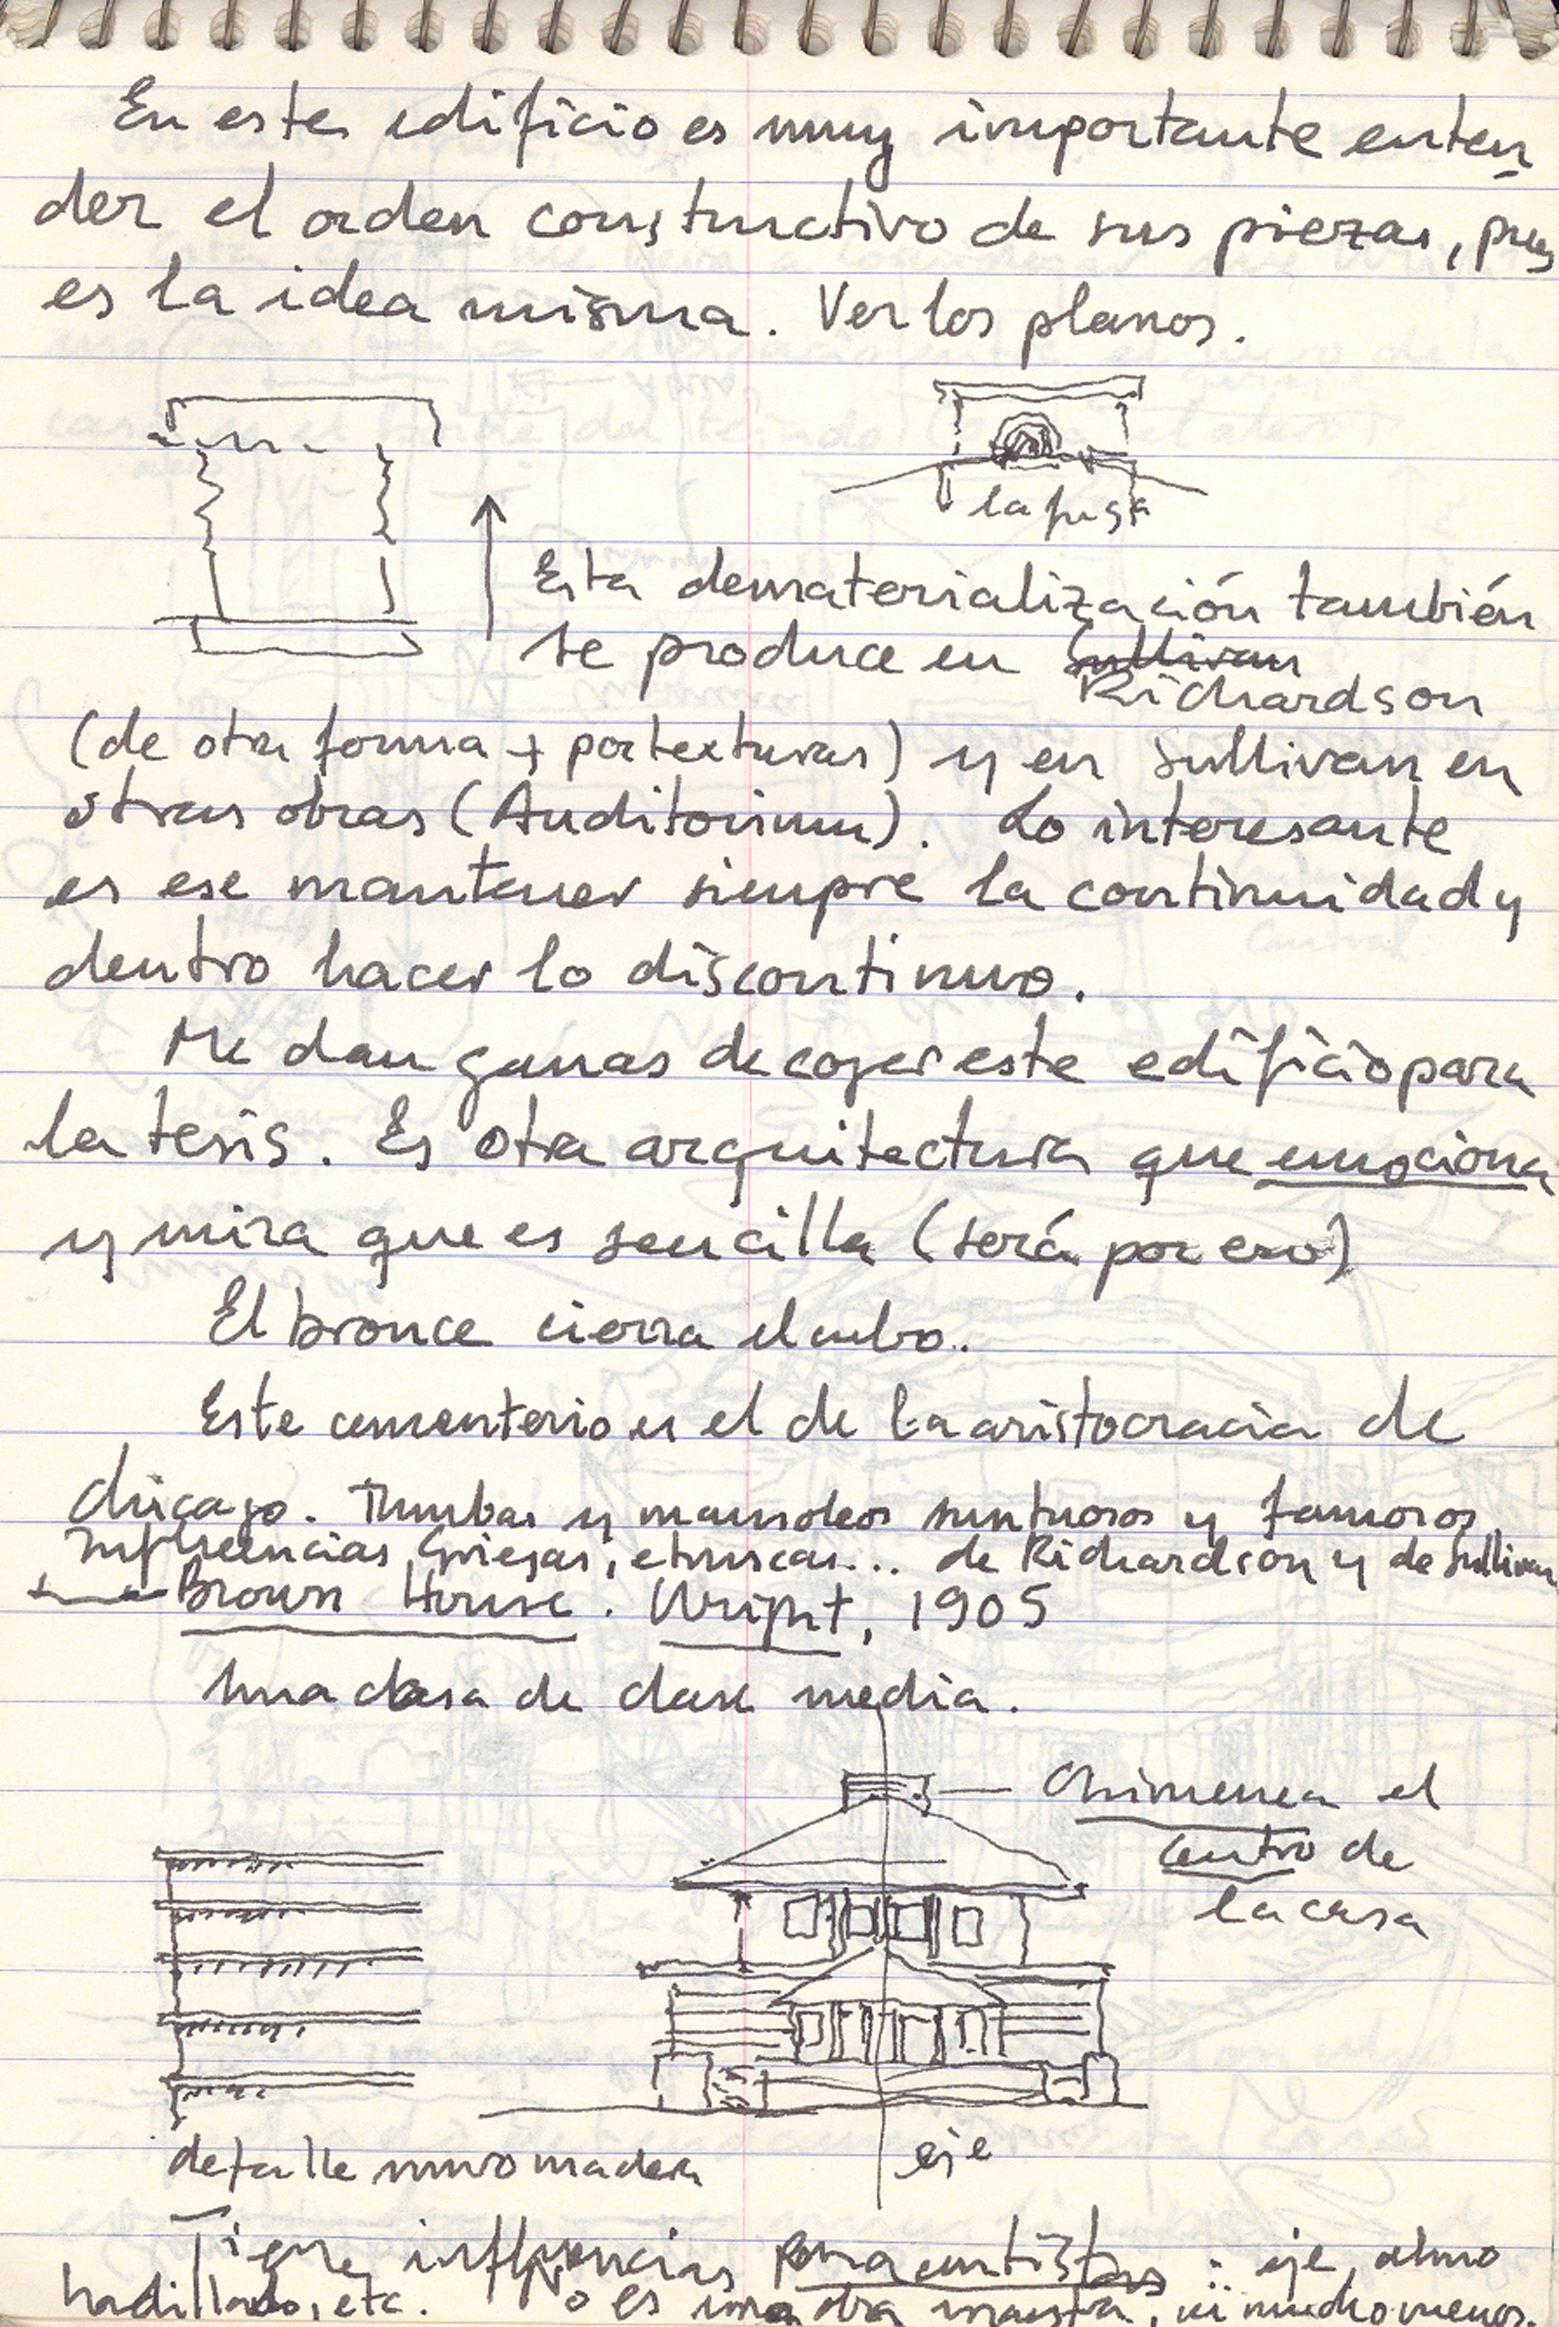 En este edificio es muy importante enten
der el orden constructivo de sus piezas, pues
es la idea misma. Ver los planos.
la fuga
Esta dematerialización también
se produce en Sullivan
Richardson
(de otra forma + por texturas) y en Sullivan en
otras obras (Auditorium). Lo interesante
es ese mantener siempre la continuidad y
dentro hacer lo discontinuo.
Me dan ganas de coger este edificio para
la tesis. Es otra arquitectura que emociona
y mira que es sencilla (será por eso)
El bronce cierra el cubo.
Este cementerio es el de la aristocracia de
Chicago. Tumbas y mausoleos suntuosos y famosos
Influencias Griegas, etruscas... de Richardson y de Sullivan
Brown House. Wright, 1905
Una casa de clase media.
Chimenea el
centro de
la casa
detalle muro madera
eje
Tiene influencias : eje,
ladillado, etc. No es una obra maestra, ni mucho menos.